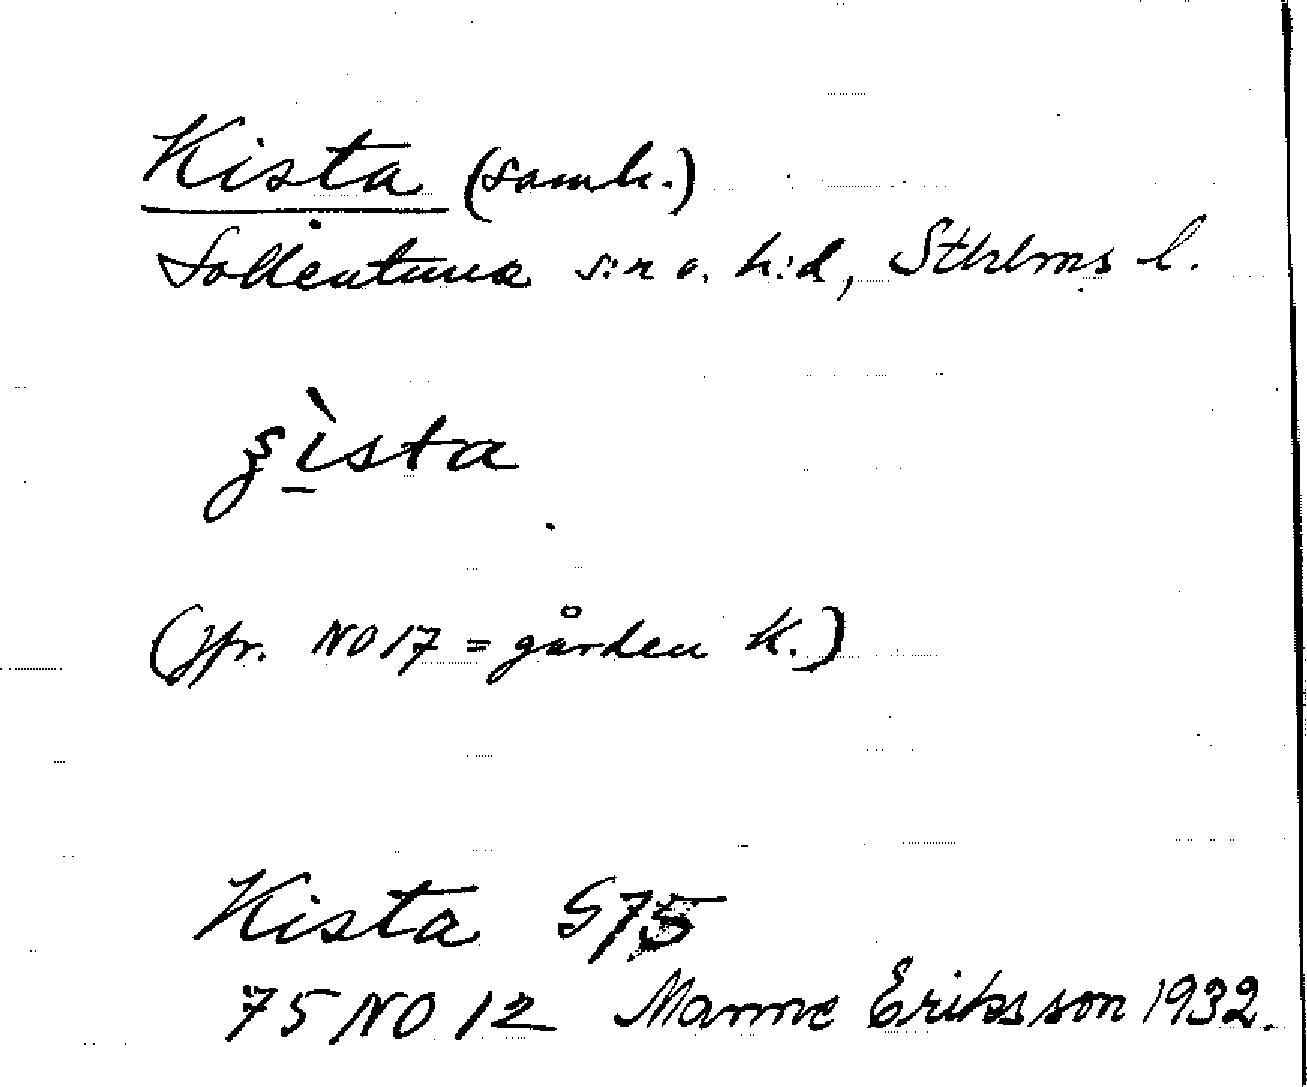 Kista (samh.)
Sollentuna s:n o. h:d, Sthlms l.
ʂìsta
(jfr. NO 17 = gården K.)
Kista G75
75 NO 12 Manne Eriksson 1932.